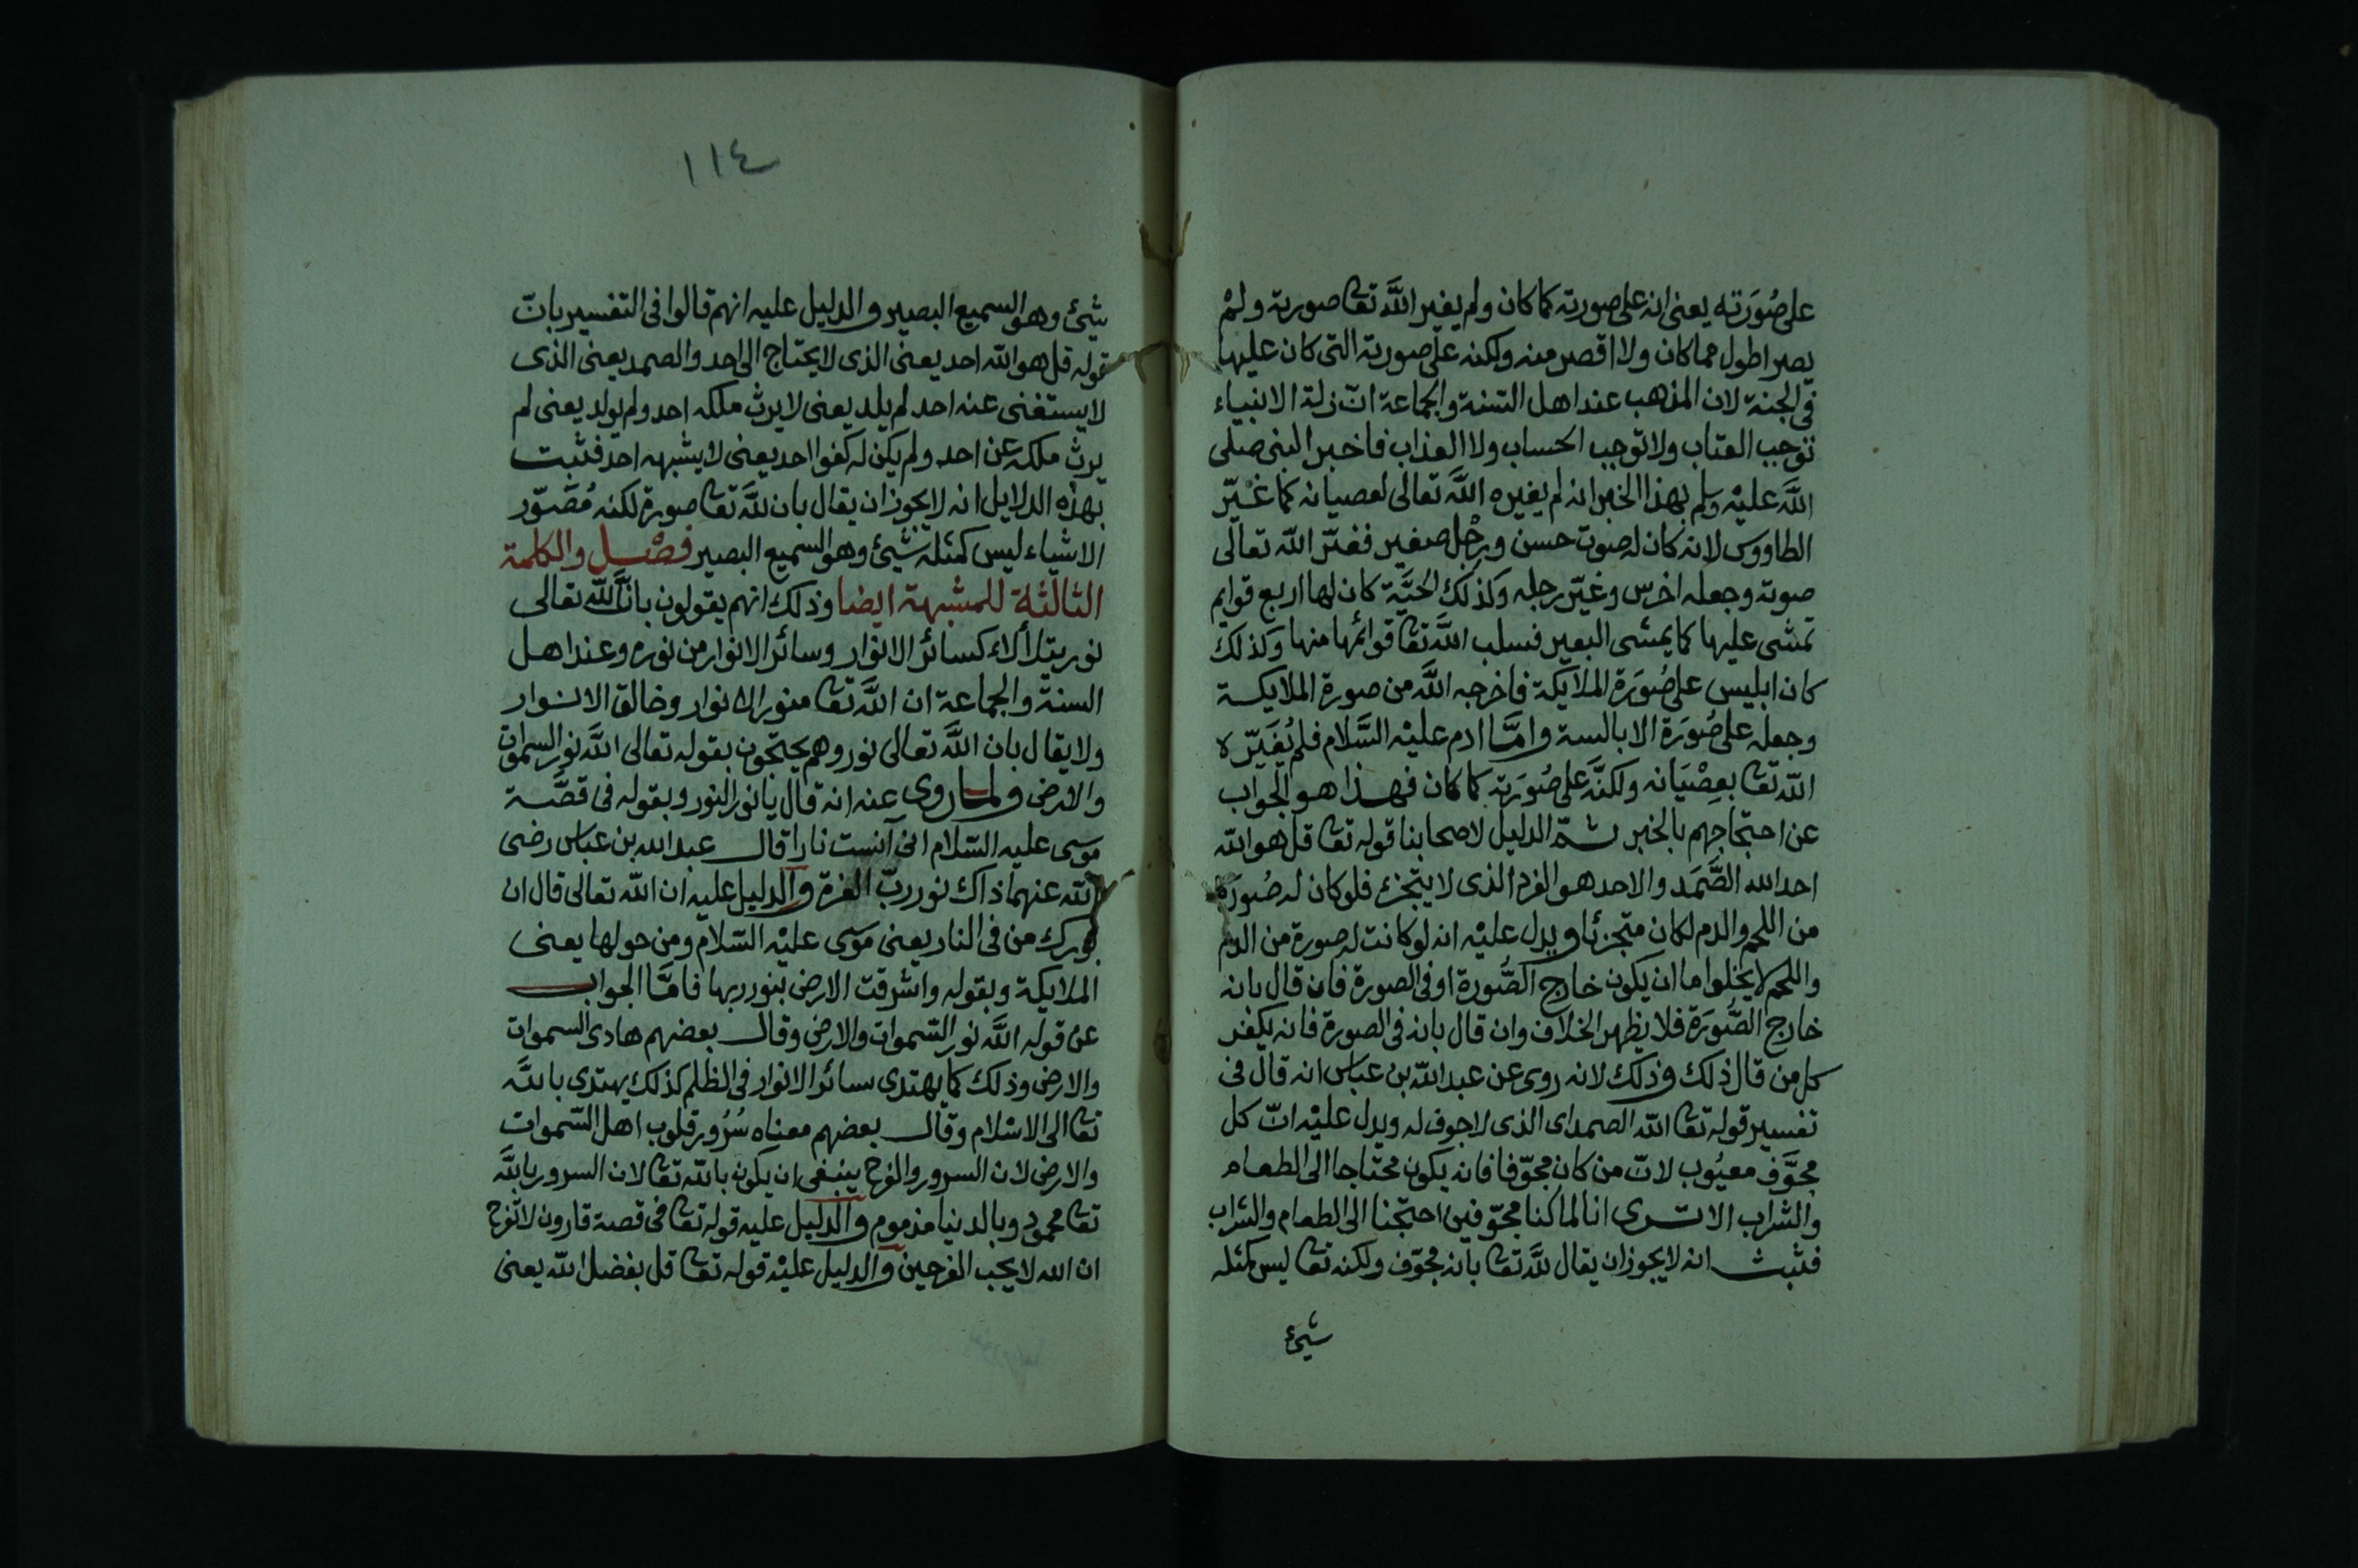 على صُوَرَته يعنى انه على صورته كما كان ولم يغير اللَّه تعا صورته ولمْ
يصر اطول مما كان ولا اقصر منه ولكنه على صورته التى كان عليها
فى الجنة لان المذهب عند اهل السّنة والجماعة انّ زلة الانبياء
توجب العتاب ولا توجب الحساب ولا العذاب فاخبر النبى صلى
اللَّه عليْه وسلم بهذا الخبر انه لم يغيره اللَّه تعالى لعصيانه كما غيّر
الطاووس لانه كان له صوت حسن ورجْل صغير فغيّر اللّه تعالى
صوته وجعله اخرس وغيّر رجله وكذلك الحيَّة كان لها اربع قوايم
تمشى عليها كما يمشى البعير فسلب اللَّه تعا قوائمها منها وكذلك
كان ابليس على صُوَرة الملايكة فاخرجه اللَّه من صورة الملايكة
وجعله على صُوَرَة الابالسة وامَّا ادم عليْه السَّلام فلم يُغَيّره
اللّه تعا بعِصْيَانه ولكنَّه على صُوَرَته كما كان فهذا هو الجواب
عن احتجاجهم بالخبر ثمّ الدليل لاصحابنا قوله تعا قل هو اللّه
احد اللّه الصَّمَد والاحد هو الفرد الذى لا يتجزئ فلو كان له صُورَة
من اللحم والدم لكان متجزئا ويدل عليْه انه لو كانت له صورة من الدم
واللحم لا يخلوا ما ان يكون خارج الصُّورة او فى الصورة فان قال بانه
خارج الصُّوَرَة فلا يظهر الخلاف وان قال بانه فى الصورة فانه يكفر
كل من قال ذلك وذلك لانه روى عن عبد اللّه بن عباس انه قال فى
تفسير قوله تعا اللّه الصمد اى الذى لا جوف له ويدل عليْه انّ كل
مجوَّف معيُوب لانّ من كان مجوّفا فانه يكون محتاجا الى الطعام
والشراب الا ترى انا لما كنا مجوّفين احتجنا الى الطعام والشراب
فثبت انه لا يجوز ان يقال للَّه تعا بانه مجوّف ولكنه تعا ليس كمثله
شيئ
١١٤
شيئ وهو السميع البصير والدليل عليه انهم قالوا فى التفسير بانّ
قوله قل هو اللّه احد يعنى الذى لا يحتاج الى احد والصمد يعنى الذى
لا يستغنى عنه احد لم يلد يعنى لا يرث ملكه احد ولم يولد يعنى لم
يرث ملكه عن احد ولم يكن له كفوا احد يعنى لا يشبهه احد فثبت
بهذه الدلايل انه لا يجوز ان يقال بان للَّه تعا صورة لكنه مُصَوّر
الاشياء ليس كمثله شيئ وهو السميع البصير فصْل والكلمة
الثالثة للمشبهة ايضا وذلك انهم يقولون بانَّ اللّه تعالى
نور يتلألاء كسائر الانوار وسائر الانوار من نوره وعند اهل
السنة والجماعة ان اللَّه تعا منور الانوار وخالق الانوار
ولا يقال بان اللَّه تعالى نور وهم يحتجّون بقوله تعالى اللَّه نور السموات
والارض ولما روى عنه انه قال يا نور النور وبقوله فى قصَّة
موسى عليه السّلام انى آنست نارا قال عبد اللّه بن عباس رضى
اللّه عنهما ذاك نور ربّ العزة والدليل عليه ان اللّه تعالى قال ان
بورك من فى النار يعنى موسى عليْه السّلام ومن حولها يعنى
الملايكة وبقوله واشرقت الارض بنور ربها فامَّا الجواب
عن قوله اللَّه نور السّموات والارض وقال بعضهم هادى السموات
والارض وذلك كما يهتدى بسائر الانوار فى الظلم كذلك يهتدى باللَّه
تعا الى الاسْلام وقال بعضهم معناه سُرُور قلوب اهل السّموات
والارض لان السرور والفرح ينبغى ان يكون باللّه تعا لان السرور باللَّه
تعا محمود وبالدنيا مذموم والدليل عليه قوله تعا فى قصة قارون لا تفرح
ان اللّه لا يحب الفرحين والدليل عليْه قوله تعا قل بفضل اللّه يعنى